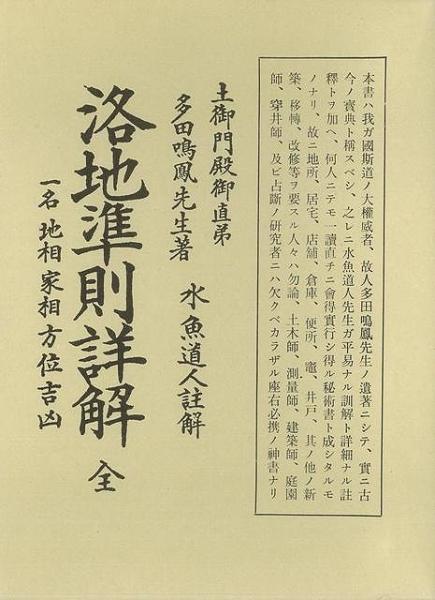 本書ハ我ガ國斯道ノ大權威者、故人多田鳴鳳先生ノ遺著ニシテ、實ニ古
今ノ寶典ト稱スベシ、之レニ水魚道人先生ガ平易ナル訓解ト詳細ナル註
釋トヲ加ヘ、何人ニテモ一讀直チニ會得實行シ得ル秘術書ト成シタルモ
ノナリ、故ニ地所、居宅、店舖、倉庫、便所、竈、井戸、其ノ他ノ新
築、移轉、改修等ヲ要スル人々ハ勿論、土木師、測量師、建築師、庭園
師、穿井師、及ビ占斷ノ研究者ニハ欠クベカラザル座右必携ノ神書ナリ
土御門殿御直弟
多田鳴鳳先生著
水魚道人註解
洛地準則詳解 全
一名 地相家相方位吉凶